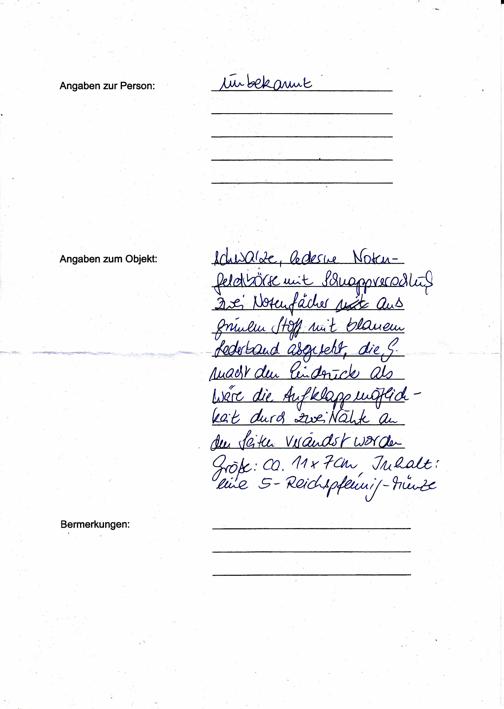 Angaben zur Person:
Unbekannt
Angaben zum Objekt:
schwarze, lederne Noten-
geldbörse mit Schnappverschluß
zwei Notenfächer aus
grünem Stoff mit blauem
Lederband abgesetzt, die G.
macht den Eindruck als
wäre die Aufklappmöglich-
keit durch zwei Nähte an
den Seiten verändst worden
Größe: ca. 11 x 7cm, Inhalt:
eine 5-Reichspfennig-Münze
Bermerkungen: